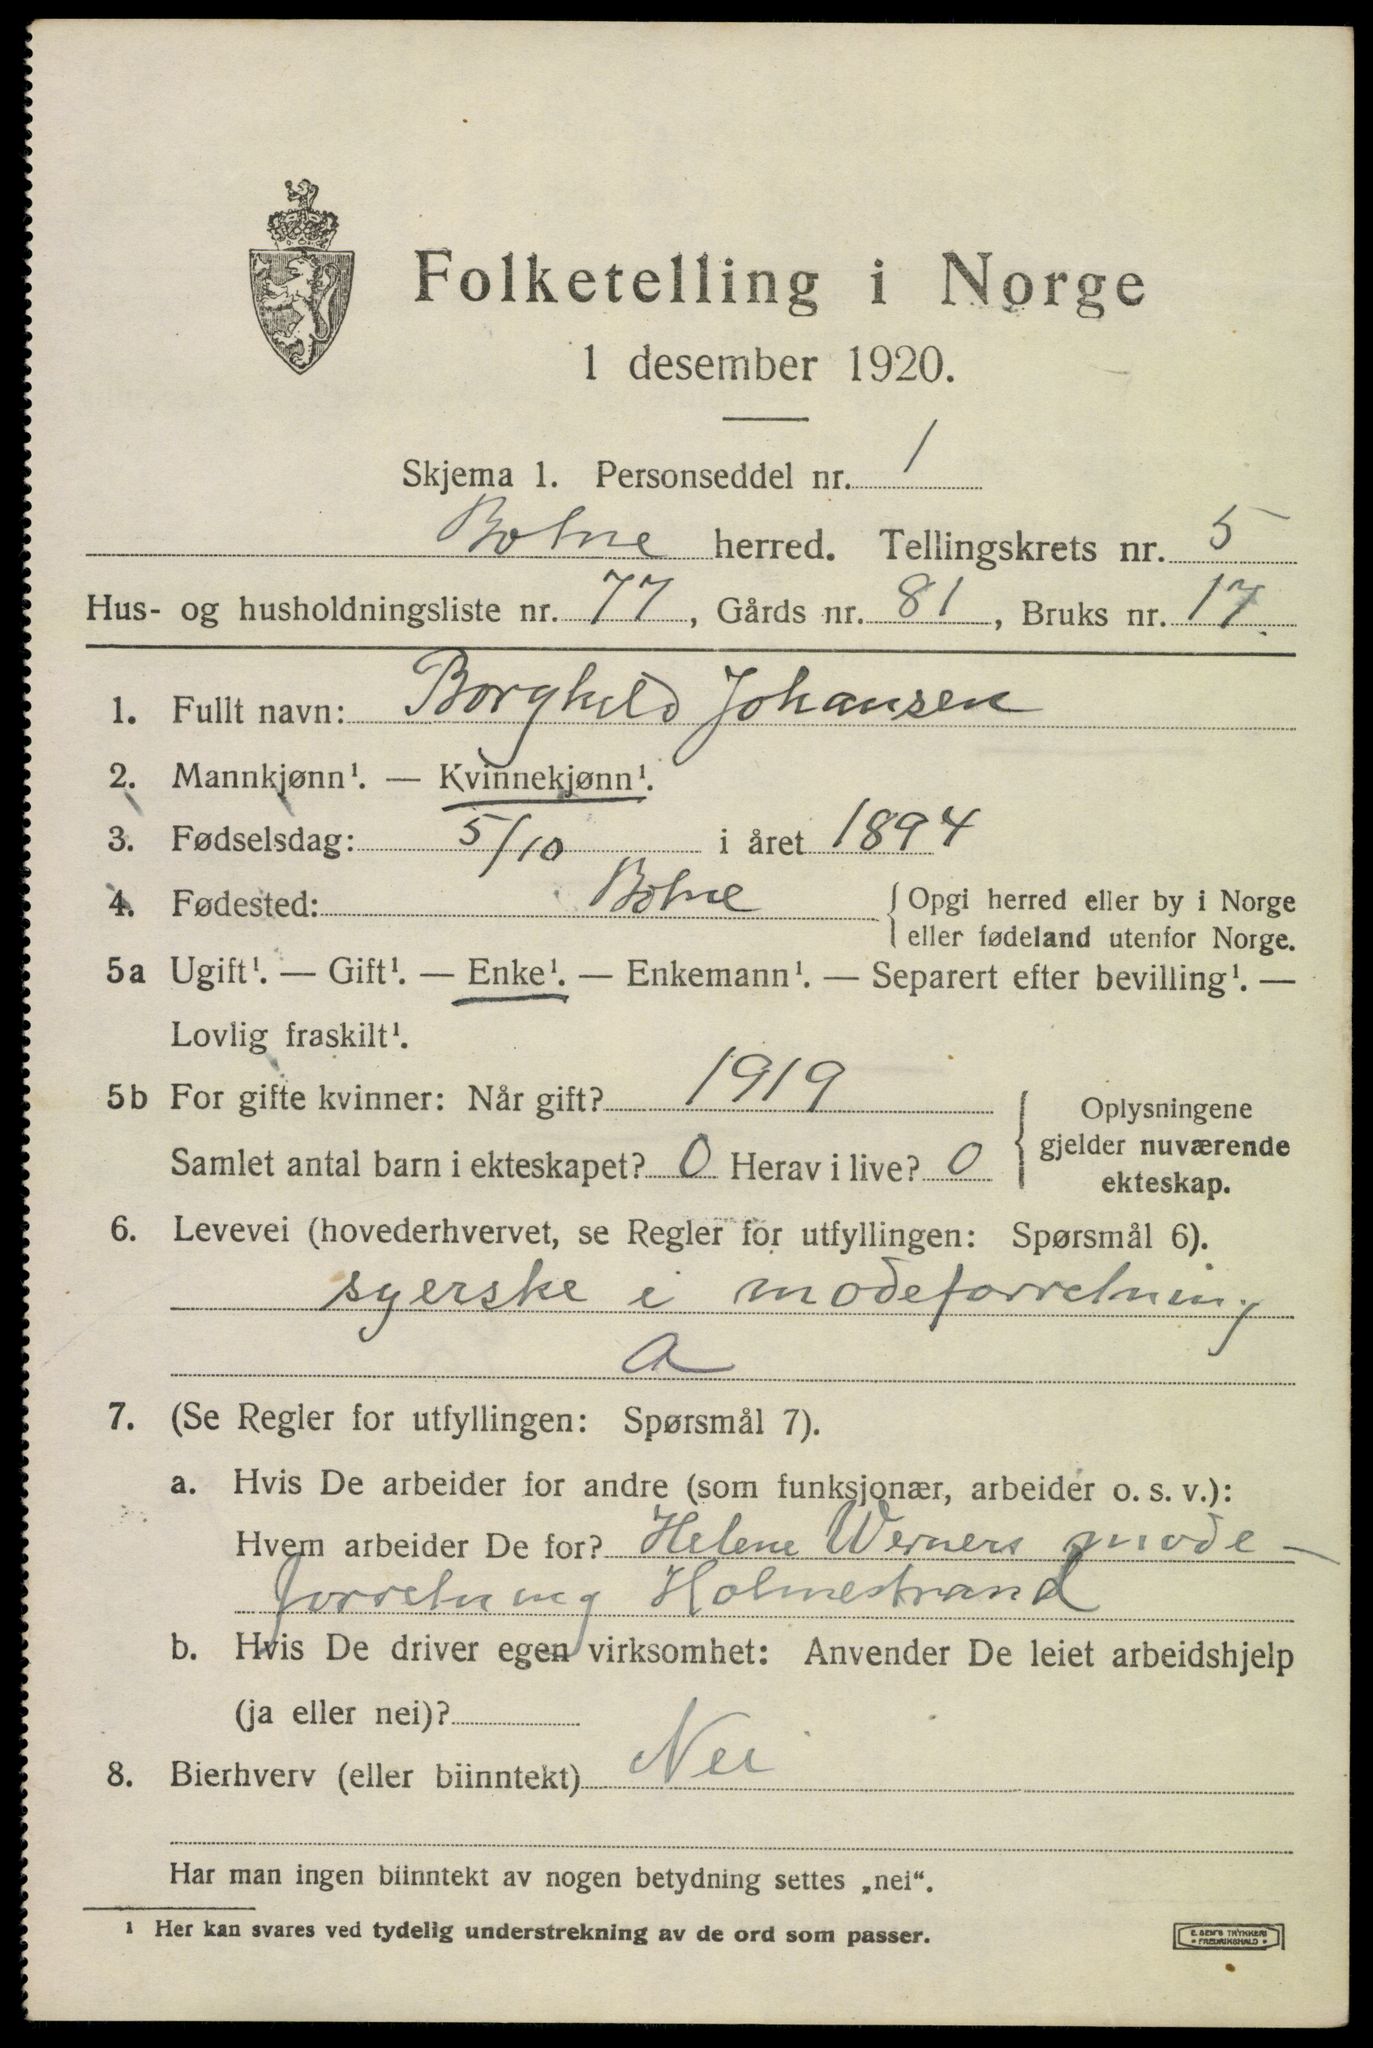 Folketelling i Norge
1 desember 1920.
Skjema 1. Personseddel nr. 1
Botne herred. Tellingskrets nr. 5
Hus- og husholdningsliste nr. 77, Gårds nr. 81, Bruks nr. 17.
1. Fullt navn: Borghild Johansen
2. Mannkjønn¹. — Kvinnekjønn¹.
3. Fødselsdag: 5/10 i året 1894
4. Fødested: Botne { Opgi herred eller by i Norge
eller fødeland utenfor Norge.
5a Ugift¹. — Gift¹. — Enke¹. — Enkemann¹. — Separert efter bevilling¹. —
Lovlig fraskilt¹.
5b For gifte kvinner: Når gift? 1919
Samlet antal barn i ekteskapet? 0 Herav i live? 0
{ Oplysningene
gjelder nuværende
ekteskap.
6. Levevei (hovederhvervet, se Regler for utfyllingen: Spørsmål 6).
syerske i modeforretning
a
7. (Se Regler for utfyllingen: Spørsmål 7).
a. Hvis De arbeider for andre (som funksjonær, arbeider o. s. v.):
Hvem arbeider De for? Helene Werners mode-
forretning Holmestrand
b. Hvis De driver egen virksomhet: Anvender De leiet arbeidshjelp
(ja eller nei)?
8. Bierhverv (eller biinntekt) Nei
Har man ingen biinntekt av nogen betydning settes „nei“.
¹ Her kan svares ved tydelig understrekning av de ord som passer.
E. SEM'S TRYKKERI
* FREDRIKSHALD *